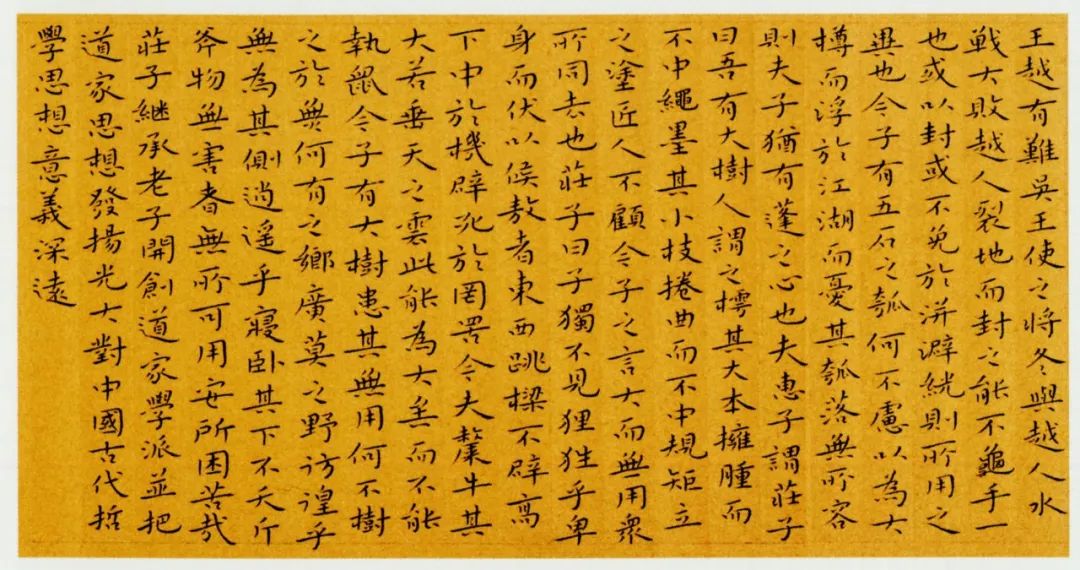 王越有難吳王使之將冬與越人水
戰大敗越人裂地而封之能不龜手一
也或以封或不免於洴澼絖則所用之
異也今子有五石之瓠何不慮以為大
樽而浮於江湖而憂其瓠落無所容
則夫子猶有蓬之心也夫惠子謂莊子
曰吾有大樹人謂之樗其大本擁腫而
不中繩墨其小枝捲曲而不中規矩立
之塗匠人不顧今子之言大而無用衆
所同去也莊子曰子獨不見狸狌乎卑
身而伏以候敖者東西跳樑不辟高
下中於機辟死於罔罟今夫斄牛其
大若垂天之雲此能為大矣而不能
執鼠今子有大樹患其無用何不樹
之於無何有之鄉廣莫之野彷徨乎
無為其側逍遥乎寢卧其下不夭斤
斧物無害者無所可用安所困苦哉
莊子継承老子開創道家學派並把
道家思想發揚光大對中國古代哲
學思想意義深遠